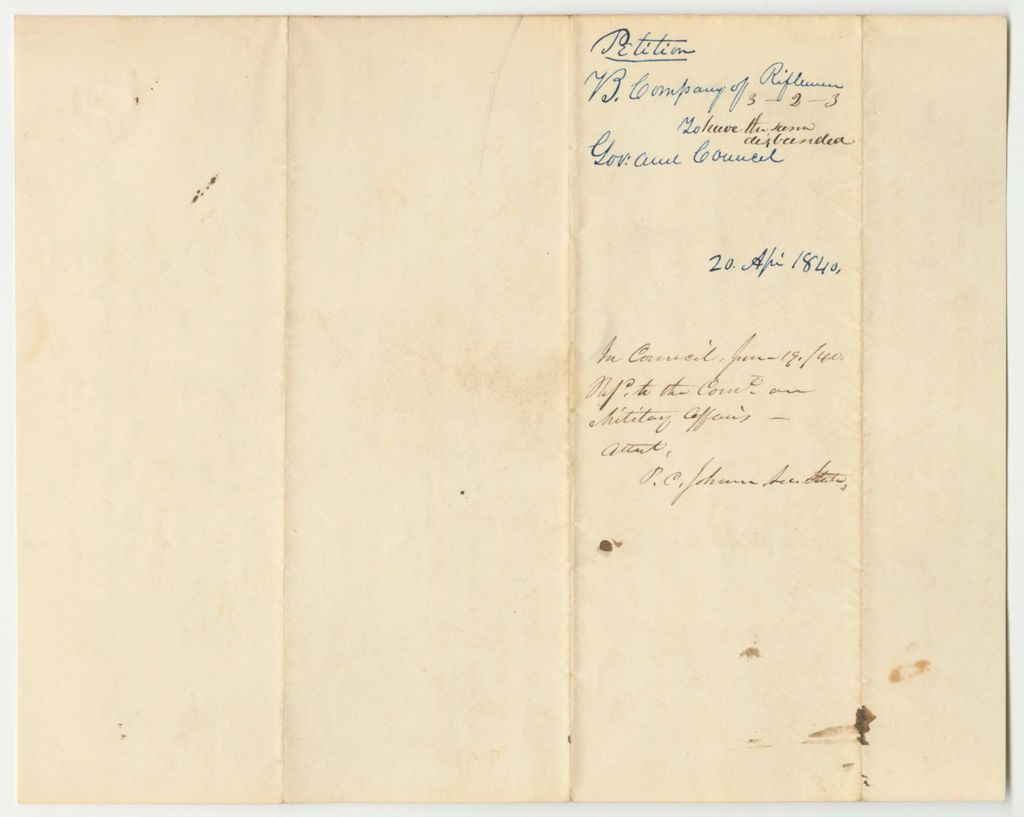 Petition
B. Company of Riflemen
3-2-3
To have the same
disbanded
Gov: and Council
20. Apr 1840.
In Council, June 19./40.
Refd. to the Comte. on
Military Affairs –
Attest,
P. C. Johnson Sec. State,